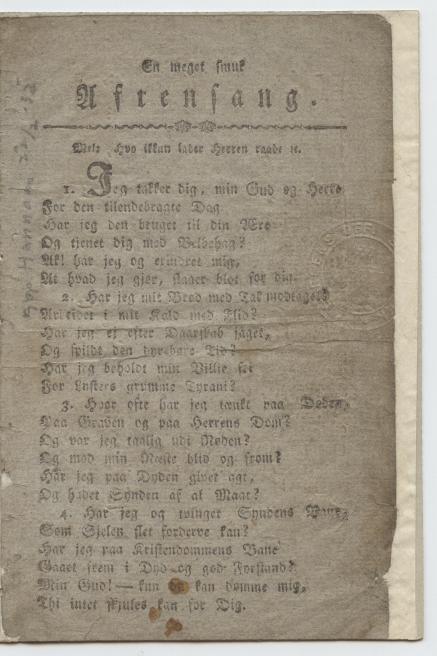 En meget smuk
Aftensang.
Mel: Hvo ikkun lader Herren raade ic.
1. Jeg takker dig, min Gud og Herre
For den tilendebragte Dag
Har jeg den bruget til din Ære
Og tjenet dig med Velbehag?
Ak! har jeg og erindret mig,
At hvad jeg gjør, staaer blot for dig.
2. Har jeg mit Brød med Tak modtaget
Arbeidet i mit Kald med Flid?
Har jeg ej efter Daarskab jaget,
Og spildt den dyrebare Tid?
Har jeg beholdt min Villie fri
For Lysters grumme Tyrani?
3. Hvor ofte har jeg tænkt paa Døden,
Paa Graven og paa Herrens Dom?
Og var jeg taalig udi Nøden?
Og mod min Næste blid og from?
Har jeg paa Dyden givet agt,
Og hadet Synden af al Magt?
4. Har jeg og tvinget Syndens
Som Sjelen slet forderve kan?
Har jeg paa Kristendommens Bane
Gaaet frem i Dyd og god Forstand?
Min Gud! — kun du kan dømme mig,
Thi intet skjules kan for Dig.